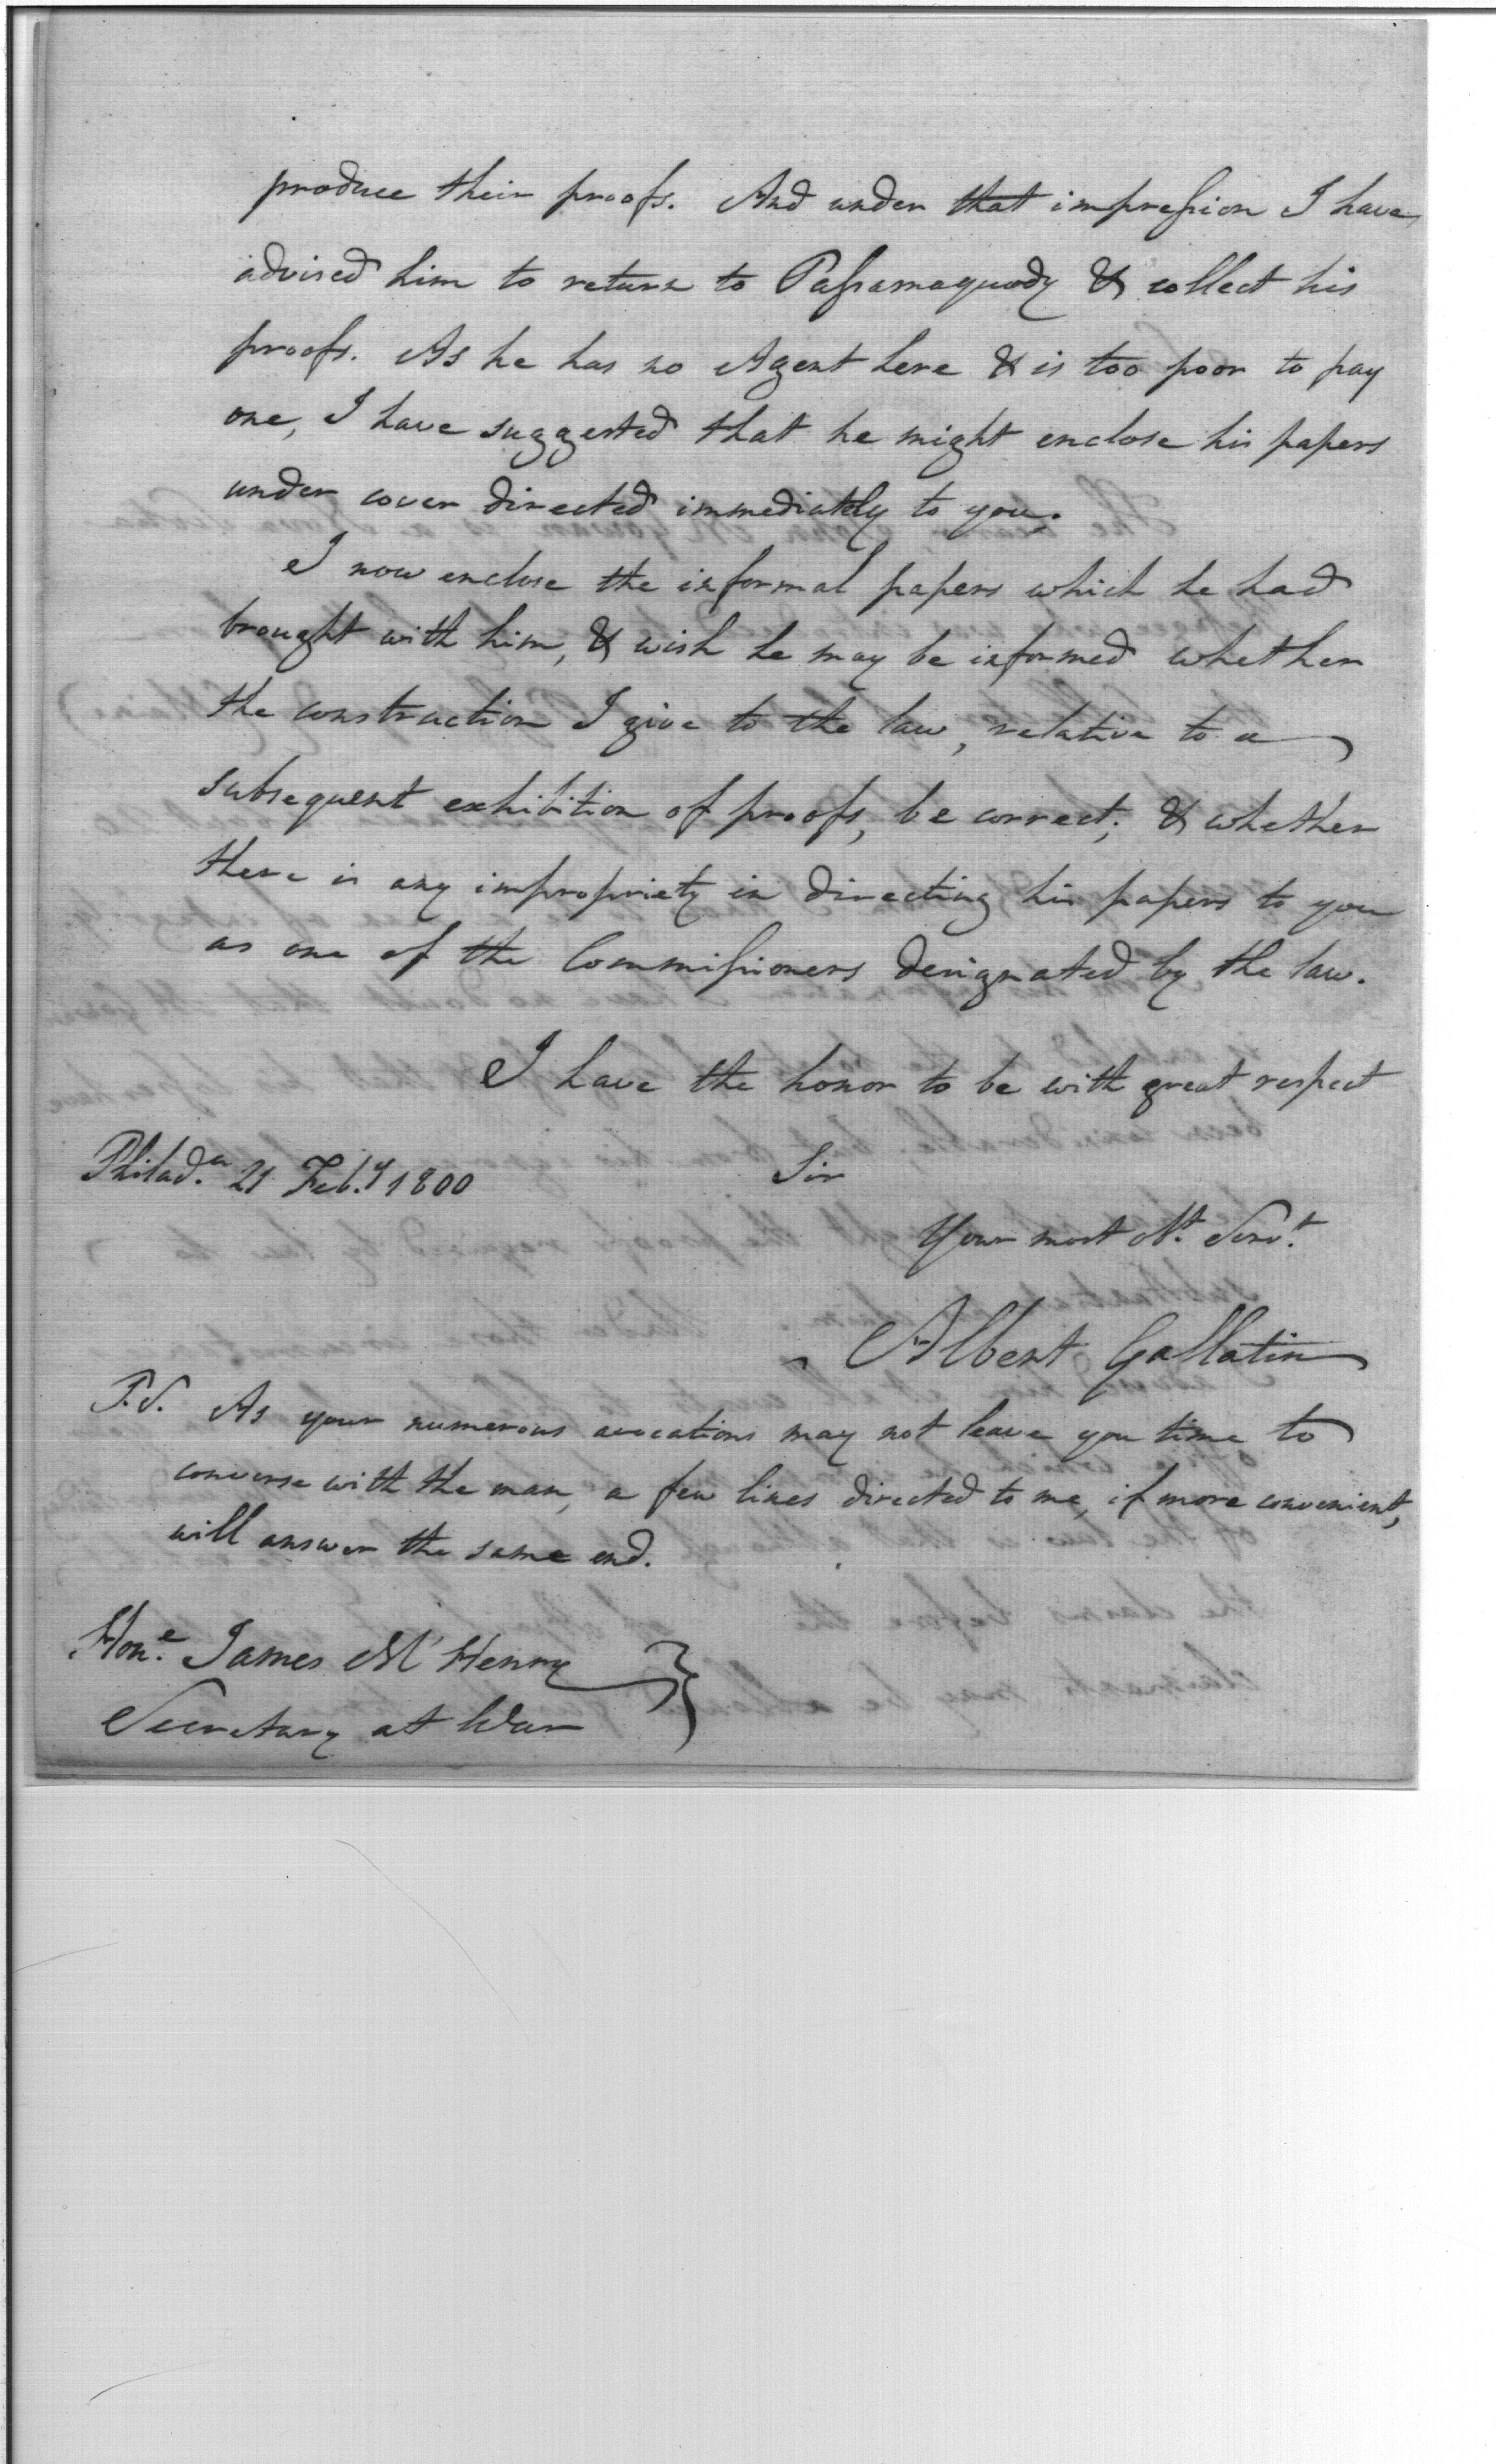 produce their proofs. And under that impreſsion I have
advised him to return to Paſsamaquody & collect his
proofs. As he has no Agent here & is too poor to pay
one, I have suggested that he might enclose his papers
under cover directed immediately to you.
I now enclose the informal papers which he had
brought with him, & wish he may be informed whether
the construction I give to the law, relative to a
subsequent exhibition of proofs, be correct; & whether
there is any impropriety in directing his papers to you
as one of the Commiſsioners designated by the law.
I have the honor to be with great respect
Philada. 21 Feb.y 1800 Sir
Your most Obt. Servt.
Albert Gallatin
P.S. As your numerous avocations may not leave you time to
converse with the man, a few lines directed to me, if more convenient,
will answer the same end.
Hone. James McHenry
Secretary at War